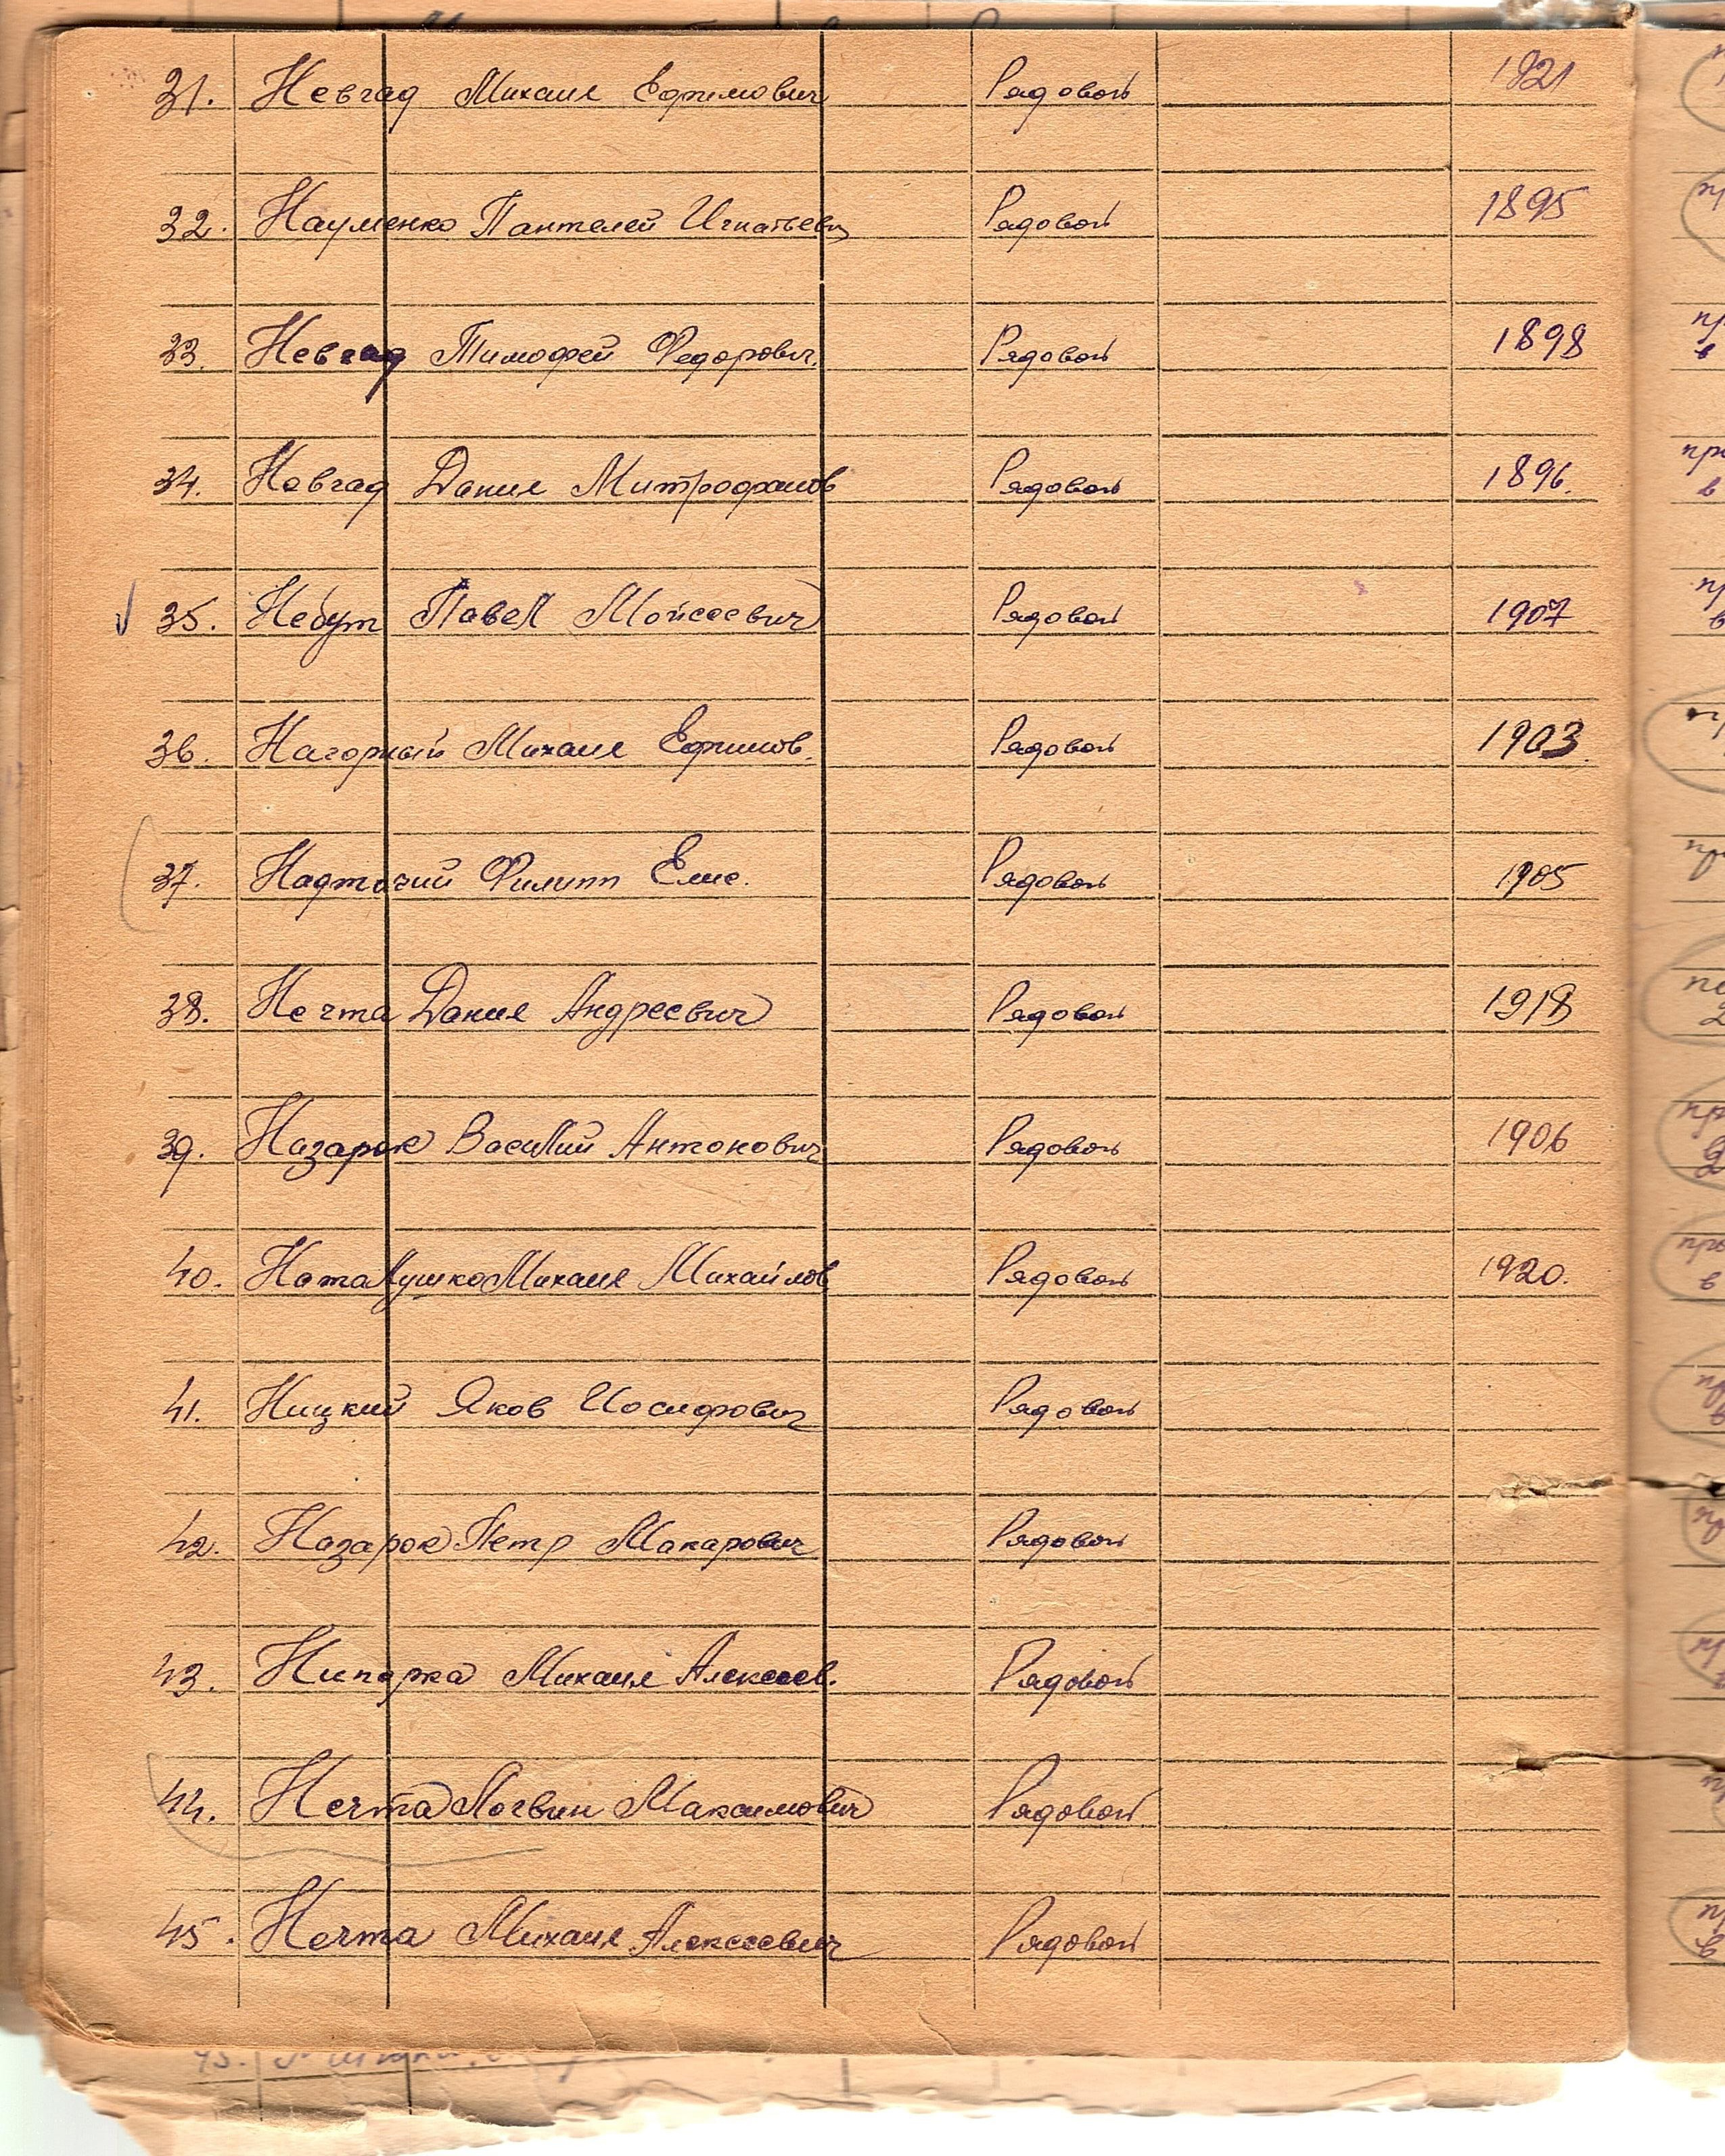 31. Невгад Михаил Ефимович Рядовой 1921
32. Науменко Пантелей Игнатьевич Рядовой 1895
33. Невгад Тимофей Федорович. Рядовой 1898
34. Невгад Данил Митрофанов Рядовой 1896.
35. Небут Павел Мойсеевич Рядовой 1907
36. Нагорный Михаил Ефимов. Рядовой 1903.
37. Надточий Филипп Елис. Рядовой 1905
38. Нечта Данил Андреевич Рядовой 1918
39. Назарок Василий Антонович Рядовой 1906
40. Наталушко Михаил Михайлов Рядовой 1920.
41. Ницкий Яков Иосифович Рядовой
42. Назарок Петр Макарович Рядовой
43. Михаил Алексеев. Рядовой
44. Нечта Логвин Максимович Рядовой
45. Нечта Михаил Алексеевич Рядовой